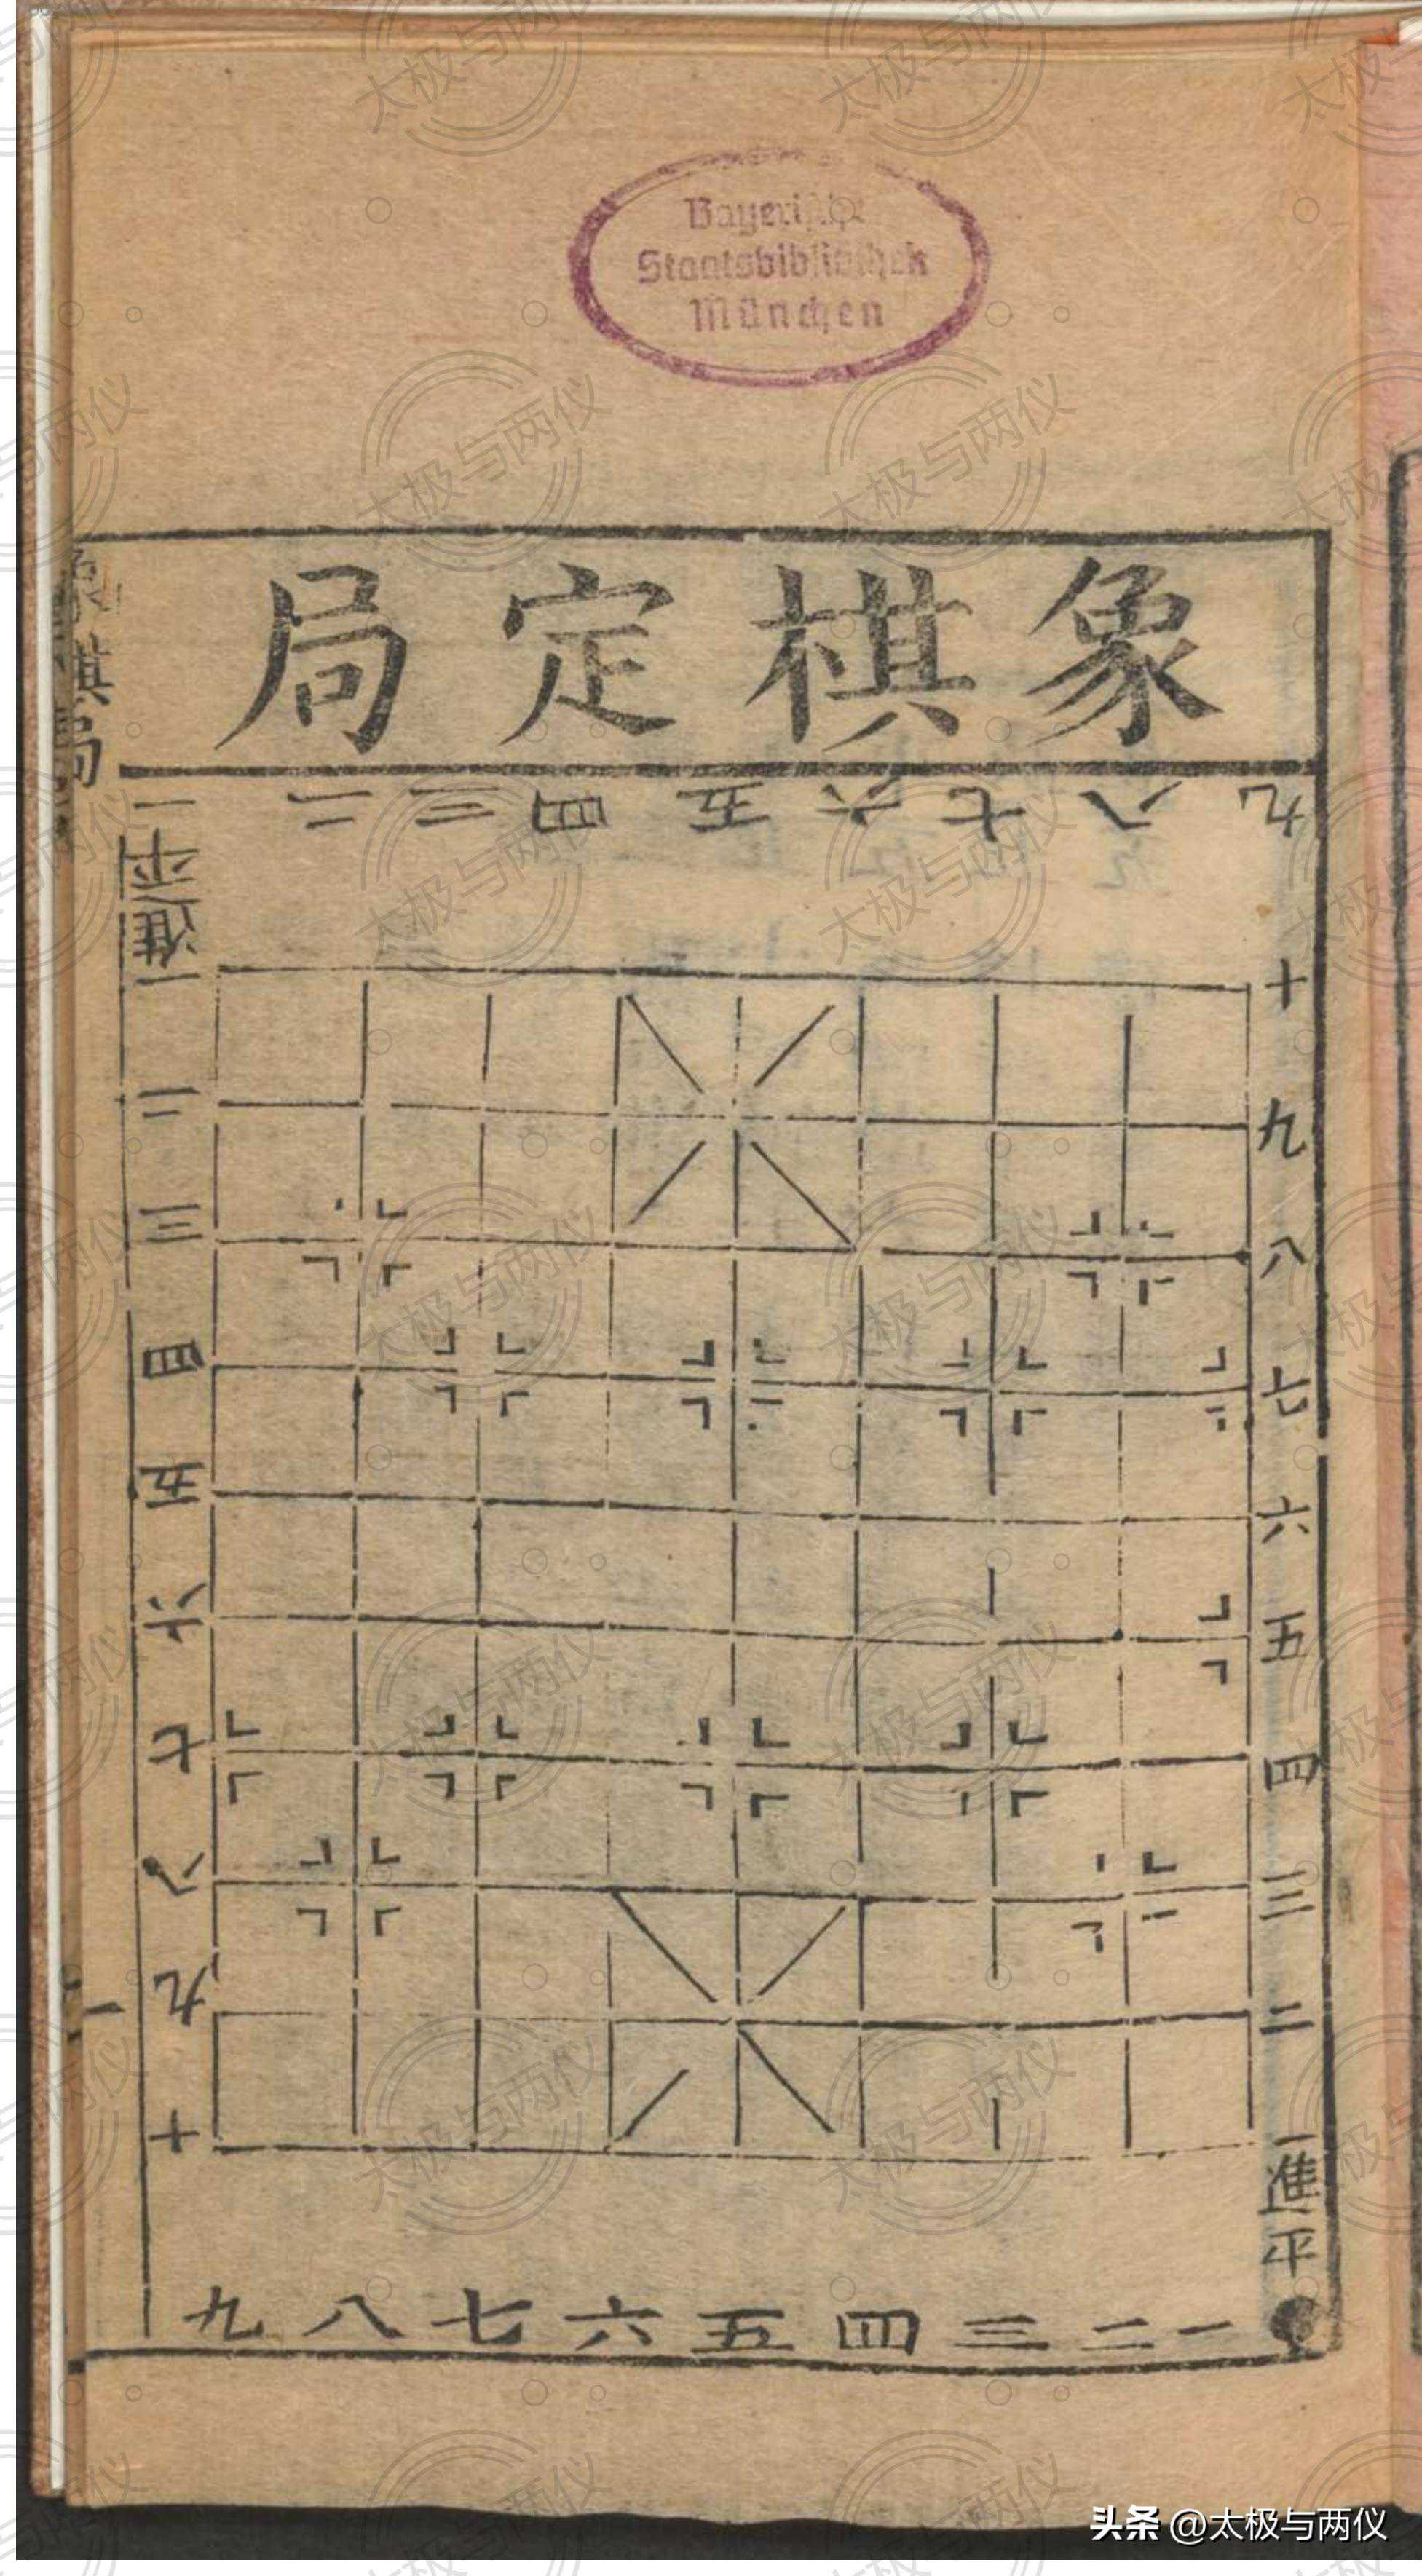 Bayerische
Staatsbibliothek
München
象棋定局
象棋局
九八七六五四三二一
平
進
一
二
三
四
五
六
七
八
九
十
十
九
八
七
六
五
四
三
二
一
進
平
一二三四五六七八九
一
头条 @太极与两仪
太极与两仪